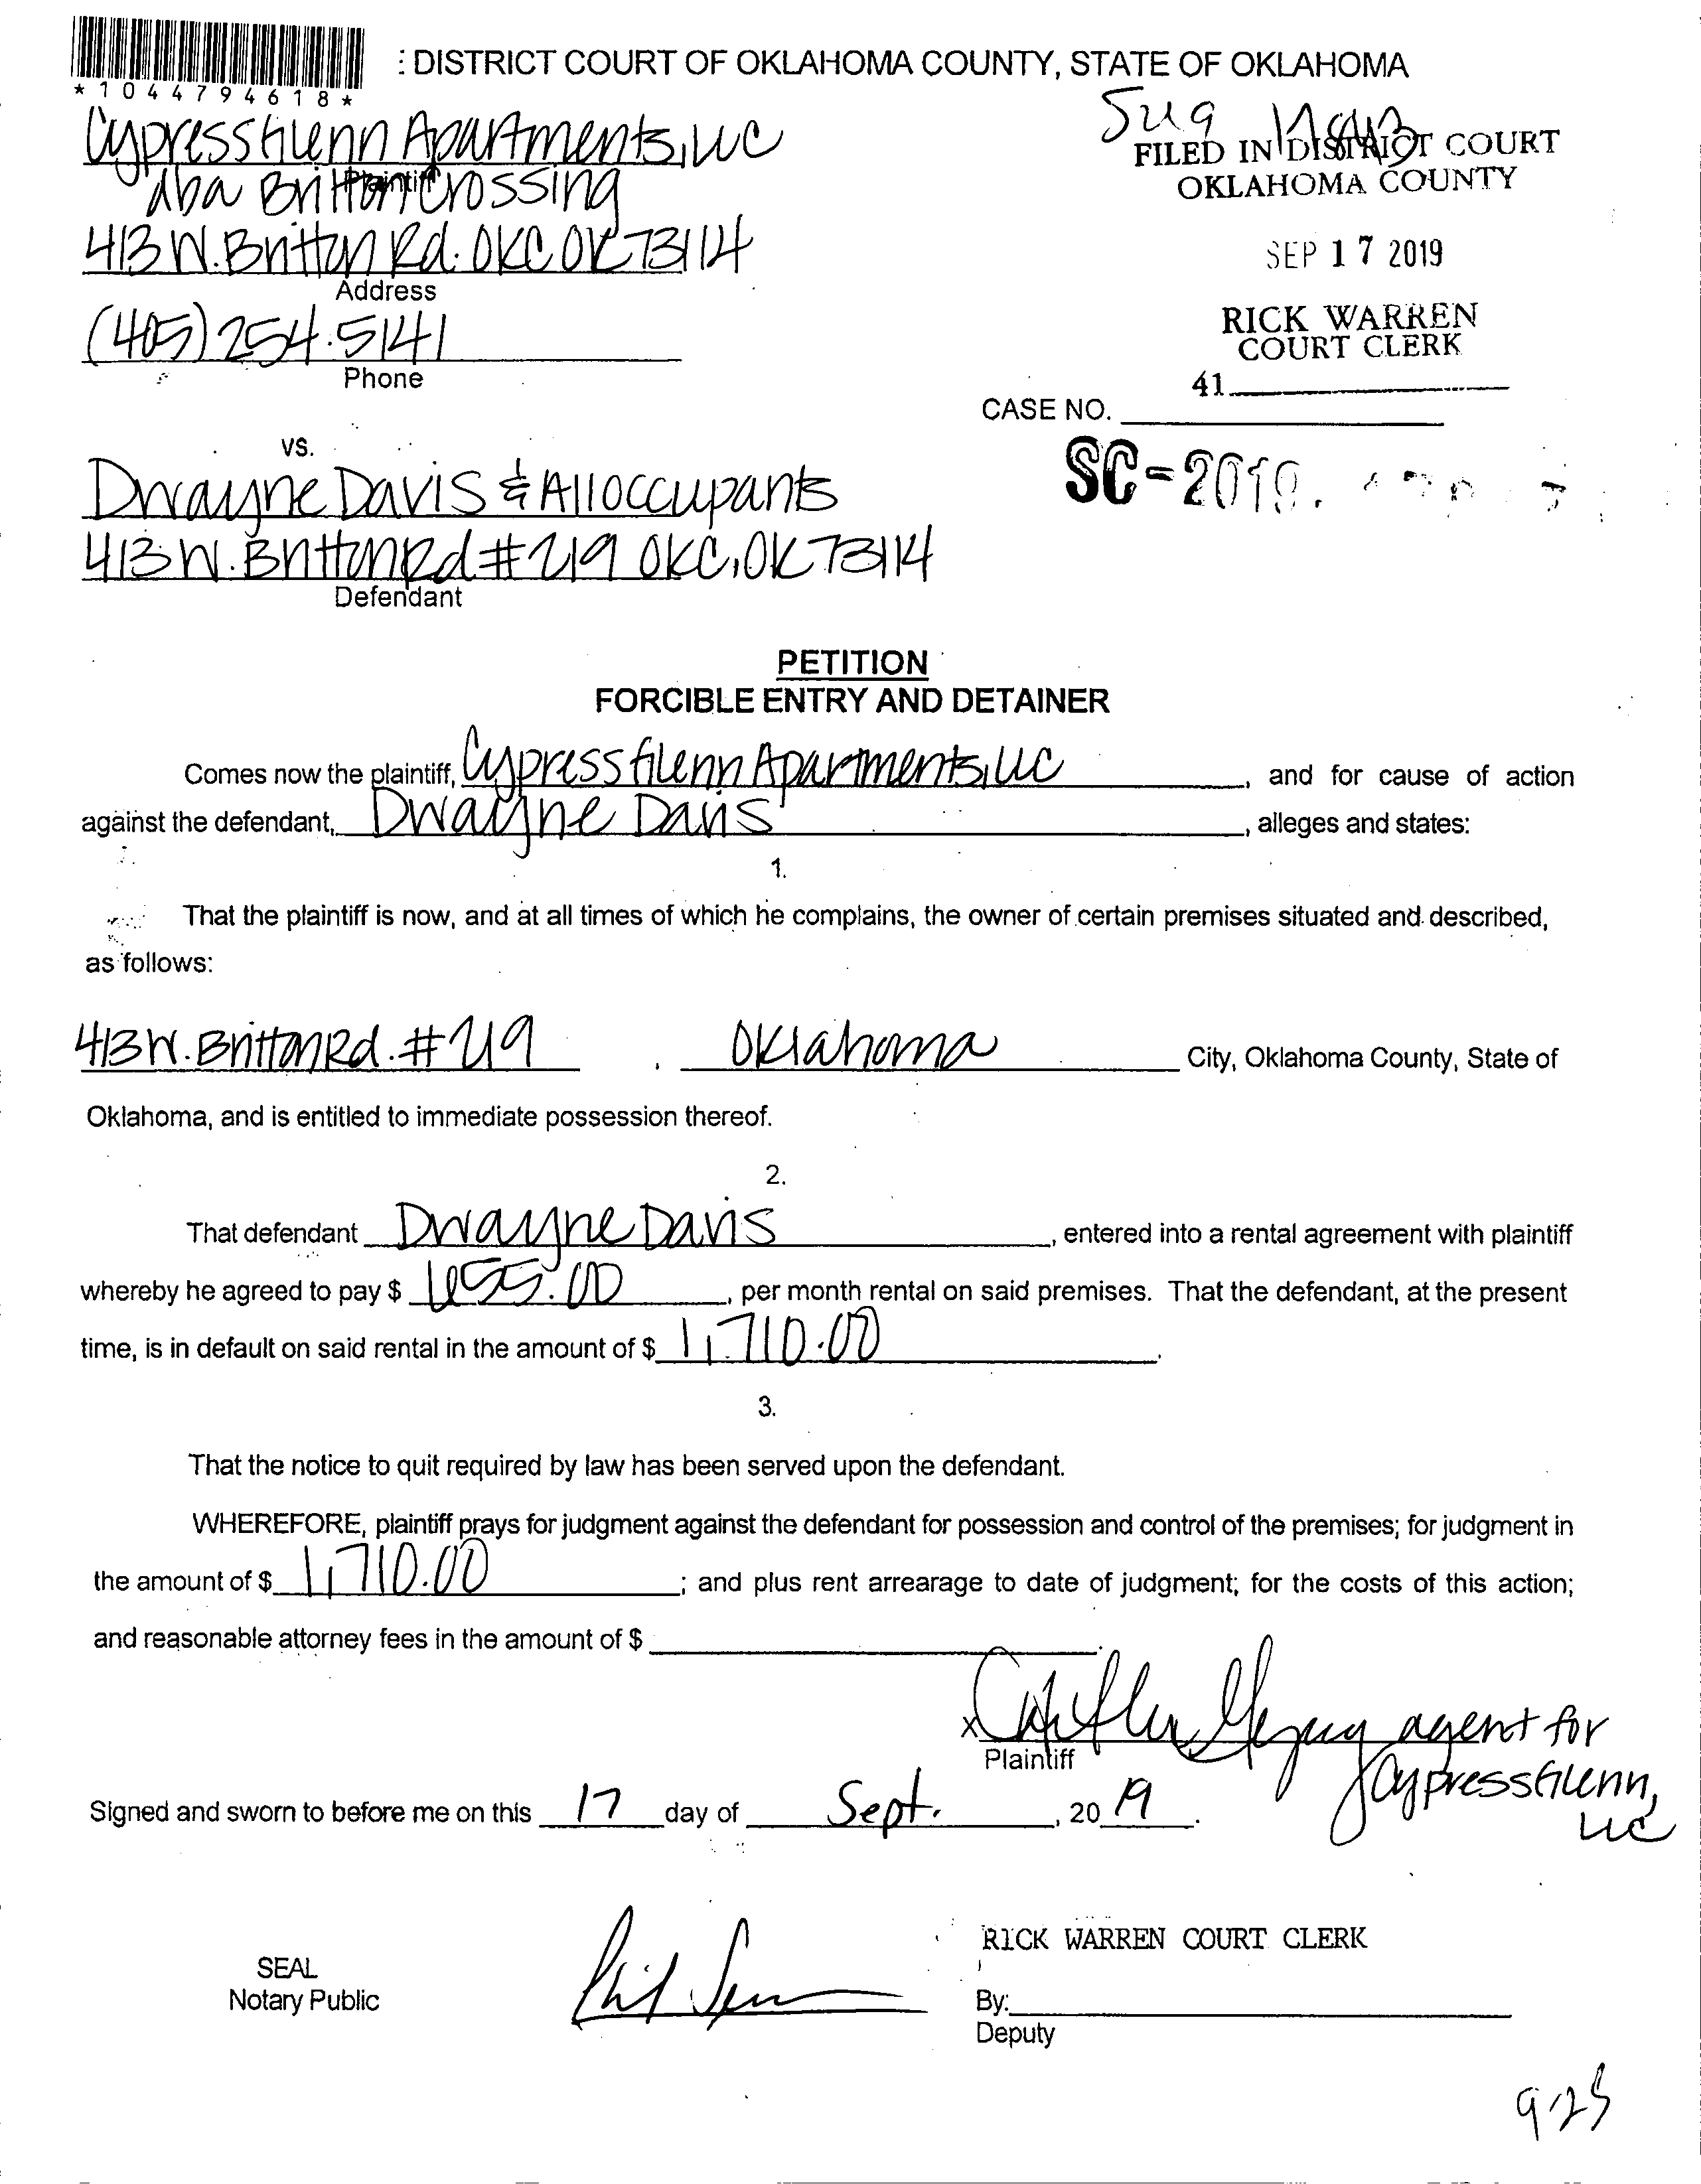 *1044794618*
: DISTRICT COURT OF OKLAHOMA COUNTY, STATE OF OKLAHOMA
Cypress Glenn Apartments, LLC
Plaintiff
dba Britton Crossing
413 W. Britton Rd. OKC OK 73114
Address
(405) 254.5141
Phone
FILED IN DISTRICT COURT
OKLAHOMA COUNTY
SEP 17 2019
RICK WARREN
COURT CLERK
41
CASE NO.
SC-2019
vs.
Dwayne Davis & All occupants
413 W. Britton Rd #219 OKC, OK 73114
Defendant
PETITION
FORCIBLE ENTRY AND DETAINER
Comes now the plaintiff, Cypress Glenn Apartments, LLC, and for cause of action
against the defendant, Dwayne Davis, alleges and states:
1.
That the plaintiff is now, and at all times of which he complains, the owner of certain premises situated and described,
as follows:
413 W. Britton Rd. #219, Oklahoma City, Oklahoma County, State of
Oklahoma, and is entitled to immediate possession thereof.
2.
That defendant Dwayne Davis, entered into a rental agreement with plaintiff
whereby he agreed to pay $ 655.00, per month rental on said premises. That the defendant, at the present
time, is in default on said rental in the amount of $ 1,710.00.
3.
That the notice to quit required by law has been served upon the defendant.
WHEREFORE, plaintiff prays for judgment against the defendant for possession and control of the premises; for judgment in
the amount of $ 1,710.00; and plus rent arrearage to date of judgment; for the costs of this action;
and reasonable attorney fees in the amount of $ .
X agent for
Plaintiff
Cypress Glenn,
LLC
Signed and sworn to before me on this 17 day of Sept., 20 19.
SEAL
Notary Public
RICK WARREN COURT CLERK
By:
Deputy